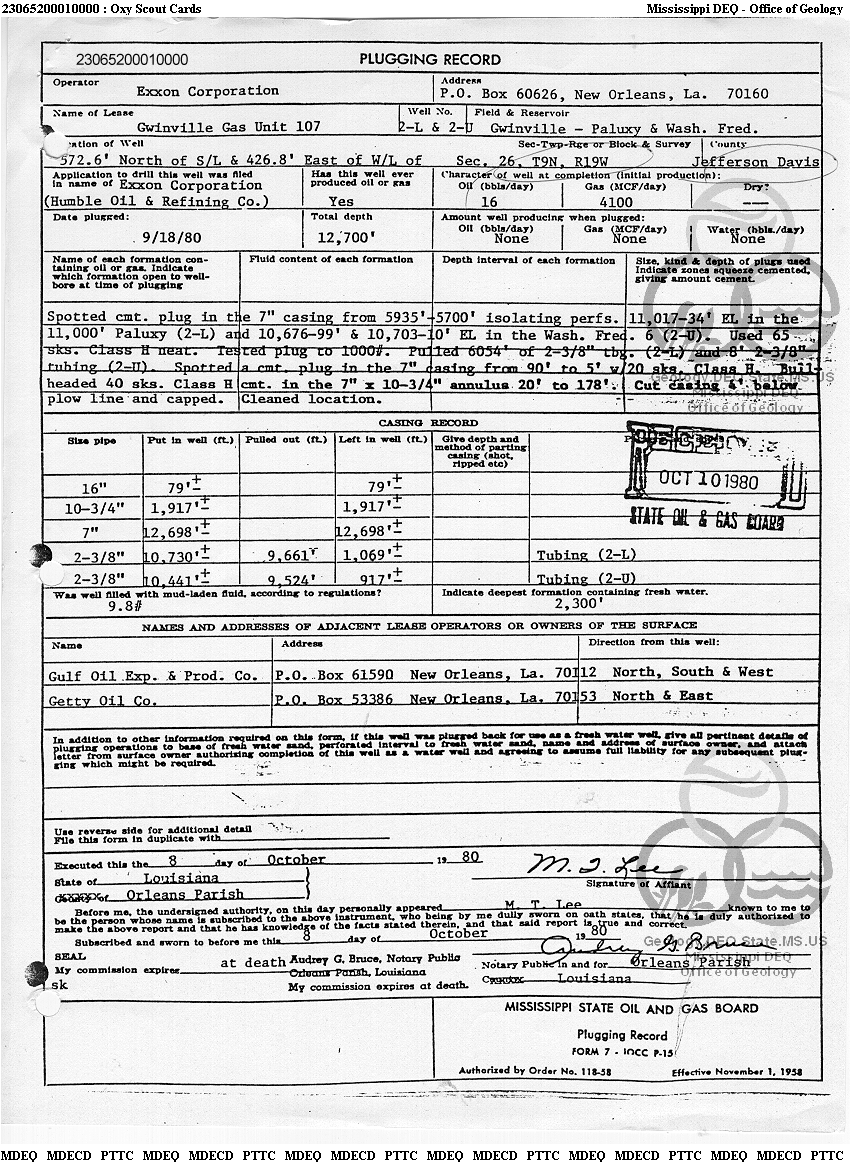 23065200010000 : Oxy Scout Cards Mississippi DEQ - Office of Geology
23065200010000 PLUGGING RECORD
Operator Address
Exxon Corporation P.O. Box 60626, New Orleans, La. 70160
Name of Lease Well No. Field & Reservoir
Gwinville Gas Unit 107 2-L & 2-U Gwinville - Paluxy & Wash. Fred.
ation of Well Sec-Twp-Rge or Block & Survey County
572.6' North of S/L & 426.8' East of W/L of Sec. 26, T9N, R19W Jefferson Davis
Application to drill this well was filed Has this well ever Character of well at completion (initial production):
in name of Exxon Corporation produced oil or gas Oil (bbls/day) Gas (MCF/day) Dry?
(Humble Oil & Refining Co.) Yes 16 4100 ---
Date plugged: Total depth Amount well producing when plugged:
Oil (bbls/day) Gas (MCF/day) Water (bbls./day)
9/18/80 12,700' None None None
Name of each formation con- Fluid content of each formation Depth interval of each formation Size, kind & depth of plugs used
taining oil or gas. Indicate Indicate zones squeeze cemented,
which formation open to well- giving amount cement.
bore at time of plugging
Spotted cmt. plug in the 7" casing from 5935'-5700' isolating perfs. 11,017-34' EL in the
11,000' Paluxy (2-L) and 10,676-99' & 10,703-10' EL in the Wash. Fred. 6 (2-U). Used 65
sks. Class H neat. Tested plug to 1000#. Pulled 6054' of 2-3/8" tbg. (2-L) and 8' 2-3/8"
tubing (2-U). Spotted a cmt. plug in the 7" casing from 90' to 5' w/20 sks. Class H. Bull-
headed 40 sks. Class H cmt. in the 7" x 10-3/4" annulus 20' to 178'. Cut casing 4' below
plow line and capped. Cleaned location.
Geology.DEQ.State.MS.US
Mississippi DEQ
Office of Geology
CASING RECORD
Size pipe Put in well (ft.) Pulled out (ft.) Left in well (ft.) Give depth and
method of parting
casing (shot,
ripped etc)
RECEIVED
OCT 10 1980
STATE OIL & GAS BOARD
16" 79'± 79'±
10-3/4" 1,917'± 1,917'±
7" 12,698'± 12,698'±
2-3/8" 10,730'± 9,661' 1,069'± Tubing (2-L)
2-3/8" 10,441'± 9,524' 917'± Tubing (2-U)
Was well filled with mud-laden fluid, according to regulations? Indicate deepest formation containing fresh water.
9.8# 2,300'
NAMES AND ADDRESSES OF ADJACENT LEASE OPERATORS OR OWNERS OF THE SURFACE
Name Address Direction from this well:
Gulf Oil Exp. & Prod. Co. P.O. Box 61590 New Orleans, La. 70112 North, South & West
Getty Oil Co. P.O. Box 53386 New Orleans, La. 70153 North & East
In addition to other information required on this form, if this well was plugged back for use as a fresh water well, give all pertinent details of
plugging operations to base of fresh water sand, perforated interval to fresh water sand, name and address of surface owner, and attach
letter from surface owner authorizing completion of this well as a water well and agreeing to assume full liability for any subsequent plug-
ging which might be required.
Use reverse side for additional detail
File this form in duplicate with
Executed this the 8 day of October 19 80 M. T. Lee
State of Louisiana Signature of Affiant
Orleans Parish
Before me, the undersigned authority, on this day personally appeared M. T. Lee known to me to
be the person whose name is subscribed to the above instrument, who being by me dully sworn on oath states, that he is duly authorized to
make the above report and that he has knowledge of the facts stated therein, and that said report is true and correct.
Subscribed and sworn to before me this 8 day of October 1980
Audrey G. Bruce
Geology.DEQ.State.MS.US
Mississippi DEQ
Office of Geology
SEAL at death Audrey G. Bruce, Notary Public
My commission expires Orleans Parish, Louisiana Notary Public in and for Orleans Parish
sk My commission expires at death. Louisiana
MISSISSIPPI STATE OIL AND GAS BOARD
Plugging Record
FORM 7 - IOCC P-15
Authorized by Order No. 118-58 Effective November 1, 1958
MDEQ MDECD PTTC MDEQ MDECD PTTC MDEQ MDECD PTTC MDEQ MDECD PTTC MDEQ MDECD PTTC MDEQ MDECD PTTC